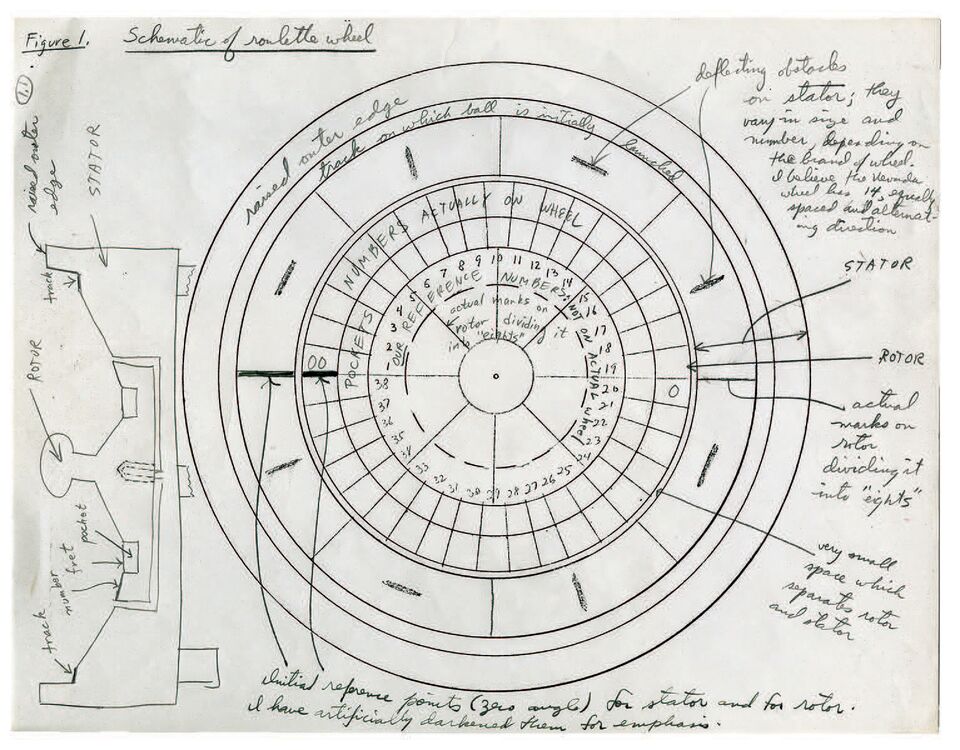 Figure 1.
Schematic of roulette wheel
1.1
raised outer
edge
STATOR
track
ROTOR
number
fret
pocket
track
raised outer edge
track on which ball is initially launched
NUMBERS ACTUALLY ON WHEEL
POCKETS
00
0
OUR REFERENCE NUMBERS; NOT ON ACTUAL wheel
1
2
3
4
5
6
7
8
9
10
11
12
13
14
15
16
17
18
19
20
21
22
23
24
25
26
27
28
29
30
31
32
33
34
35
36
37
38
actual marks on
rotor dividing it
into "eights"
deflecting obstacles
on stator; they
vary in size and
number, depending on
the brand of wheel.
I believe the Nevada
wheel has 14, equally
spaced and alternat-
ing direction
STATOR
ROTOR
actual
marks on
rotor
dividing it
into "eights"
very small
space which
separates rotor
and stator
Initial reference points (zero angle) for stator and for rotor.
I have artificially darkened them for emphasis.